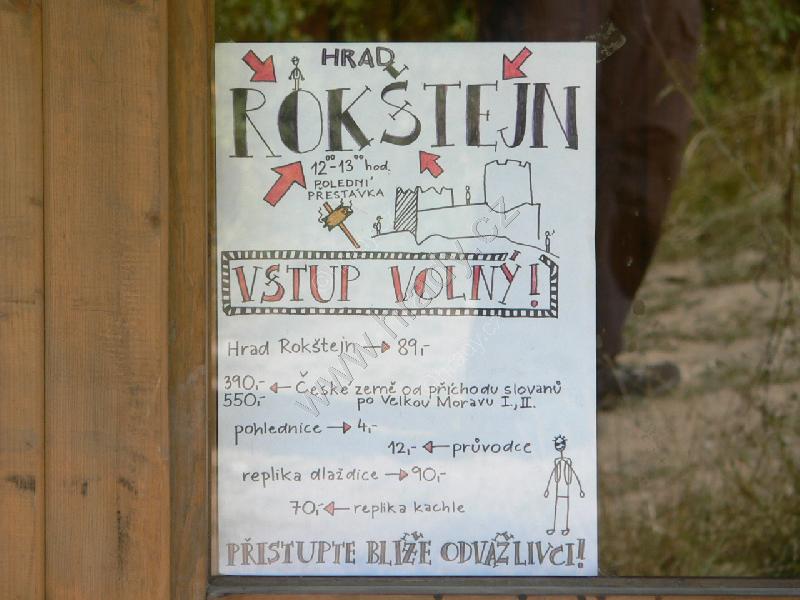 HRAD
ROKŠTEJN
12⁰⁰-13⁰⁰ hod.
POLEDNÍ
PŘESTÁVKA
VSTUP VOLNÝ!
Hrad Rokštejn → 89,-
390,- ← České země od příchodu slovanů
550,- po Velkou Moravu I., II.
pohlednice → 4,-
12,- ← průvodce
replika dlaždice → 90,-
70,- ← replika kachle
PŘISTUPTE BLÍŽE ODVÁŽLIVCI!
www.hrady.cz